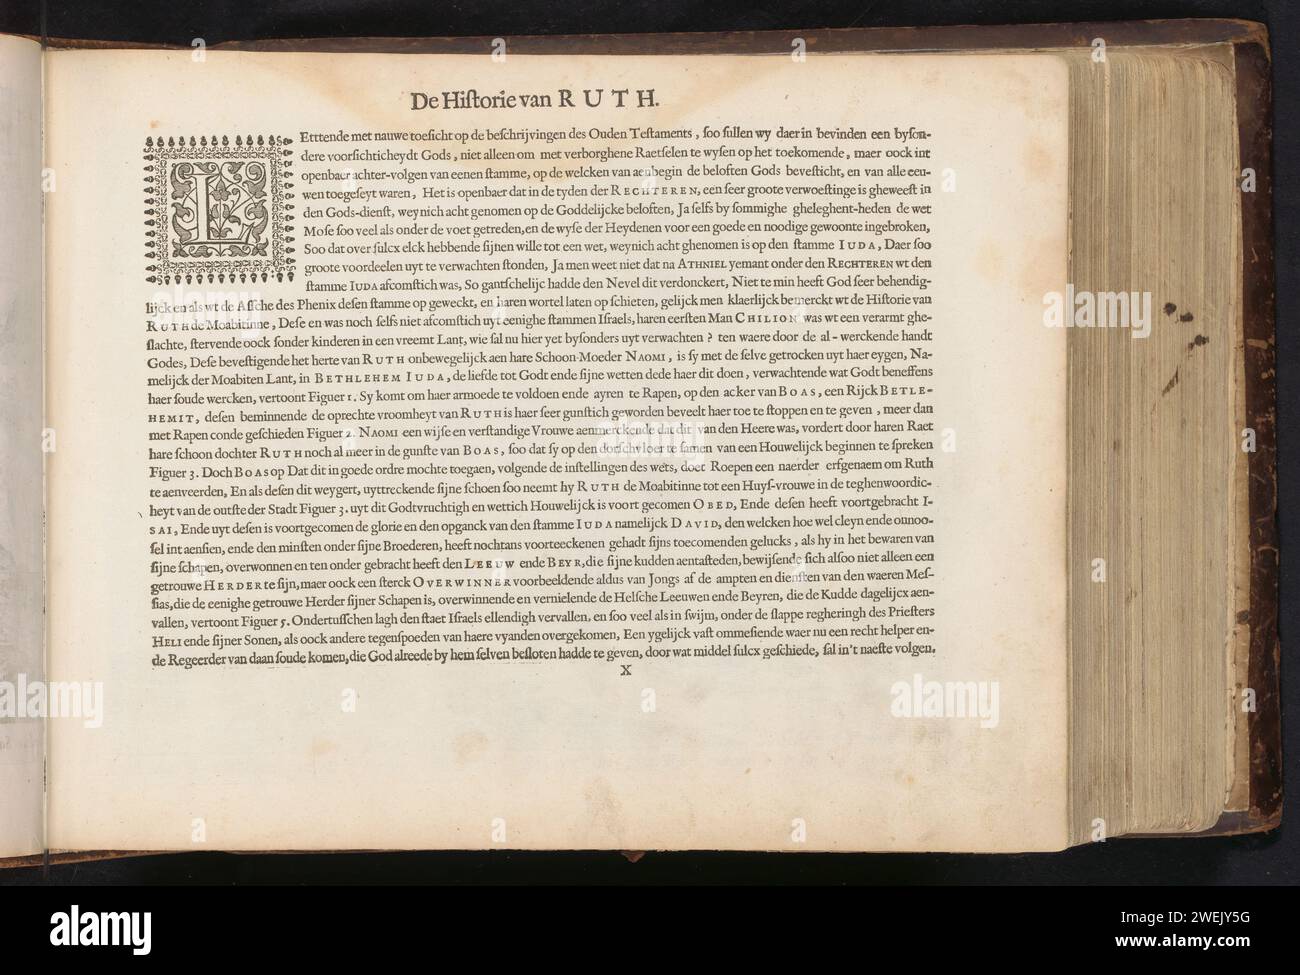 De Hiſtorie van RUTH.
LEtttende met nauwe toeſicht op de beſchrijvingen des Ouden Teſtaments, ſoo ſullen wy daer in bevinden een byſon-
dere voorſichticheydt Gods, niet alleen om met verborghene Raetſelen te wyſen op het toekomende, maer oock int
openbaer achter-volgen van eenen ſtamme, op de welcken van aenbegin de beloften Gods beveſticht, en van alle eeu-
wen toegeſeyt waren, Het is openbaer dat in de tyden der RECHTEREN, een ſeer groote verwoeſtinge is gheweeſt in
den Gods-dienſt, weynich acht genomen op de Goddelijcke beloften, Ja ſelfs by ſommighe gheleghent-heden de wet
Moſe ſoo veel als onder de voet getreden, en de wyſe der Heydenen voor een goede en noodige gewoonte ingebroken,
Soo dat over ſulcx elck hebbende ſijnen wille tot een wet, weynich acht ghenomen is op den ſtamme IUDA, Daer ſoo
groote voordeelen uyt te verwachten ſtonden, Ja men weet niet dat na ATHNIEL yemant onder den RECHTEREN wt den
ſtamme IUDA afcomſtich was, So gantſchelijc hadde den Nevel dit verdonckert, Niet te min heeft God ſeer behendig-
lijck en als wt de Aſſche des Phenix deſen ſtamme op geweckt, en haren wortel laten op ſchieten, gelijck men klaerlijck bemerckt wt de Hiſtorie van
RUTH de Moabitinne, Deſe en was noch ſelfs niet afcomſtich uyt eenighe ſtammen Iſraels, haren eerſten Man CHILION was wt een verarmt ghe-
ſlachte, ſtervende oock ſonder kinderen in een vreemt Lant, wie ſal nu hier yet byſonders uyt verwachten? ten waere door de al-werckende handt
Godes, Deſe beveſtigende het herte van RUTH onbewegelijck aen hare Schoon-Moeder NAOMI, is ſy met de ſelve getrocken uyt haer eygen, Na-
melijck der Moabiten Lant, in BETHLEHEM IUDA, de liefde tot Godt ende ſijne wetten dede haer dit doen, verwachtende wat Godt beneffens
haer ſoude wercken, vertoont Figuer 1. Sy komt om haer armoede te voldoen ende ayren te Rapen, op den acker van BOAS, een Rijck BETLE-
HEMIT, deſen beminnende de oprechte vroomheyt van RUTH is haer ſeer gunſtich geworden beveelt haer toe te ſtoppen en te geven, meer dan
met Rapen conde geſchieden Figuer 2. NAOMI een wijſe en verſtandige Vrouwe aenmerckende dat dit van den Heere was, vordert door haren Raet
hare ſchoon dochter RUTH noch al meer in de gunſte van BOAS, ſoo dat ſy op den dorſchvloer te ſamen van een Houwelijck beginnen te ſpreken
Figuer 3. Doch BOAS op Dat dit in goede ordre mochte toegaen, volgende de inſtellingen des wets, doet Roepen een naerder erfgenaem om Ruth
te aenveerden, En als deſen dit weygert, uyttreckende ſijne ſchoen ſoo neemt hy RUTH de Moabitinne tot een Huyſ-vrouwe in de teghenwoordic-
heyt van de outſte der Stadt Figuer 3. uyt dit Godtvruchtigh en wettich Houwelijck is voort gecomen OBED, Ende deſen heeft voortgebracht I-
SAI, Ende uyt deſen is voortgecomen de glorie en den opganck van den ſtamme IUDA namelijck DAVID, den welcken hoe wel cleyn ende onnoo-
ſel int aenſien, ende den minſten onder ſijne Broederen, heeft nochtans voorteeckenen gehadt ſijns toecomenden gelucks, als hy in het bewaren van
ſijne ſchapen, overwonnen en ten onder gebracht heeft den LEEUW ende BEYR, die ſijne kudden aentaſteden, bewijſende ſich alſoo niet alleen een
getrouwe HERDER te ſijn, maer oock een ſterck OVERWINNER voorbeeldende aldus van Jongs af de ampten en dienſten van den waeren Meſ-
ſias, die de eenighe getrouwe Herder ſijner Schapen is, overwinnende en vernielende de Helſche Leeuwen ende Beyren, die de Kudde dagelijcx aen-
vallen, vertoont Figuer 5. Ondertuſſchen lagh den ſtaet Iſraels ellendigh vervallen, en ſoo veel als in ſwijm, onder de ſlappe regheringh des Prieſters
HELI ende ſijner Sonen, als oock andere tegenſpoeden van haere vyanden overgekomen, Een ygelijck vaſt ommeſiende waer nu een recht helper en-
de Regeerder van daan ſoude komen, die God alreede by hem ſelven beſloten hadde te geven, door wat middel ſulcx geſchiede, ſal in't naeſte volgen.
X
alamy
Image ID: 2WEJY5G
www.alamy.com